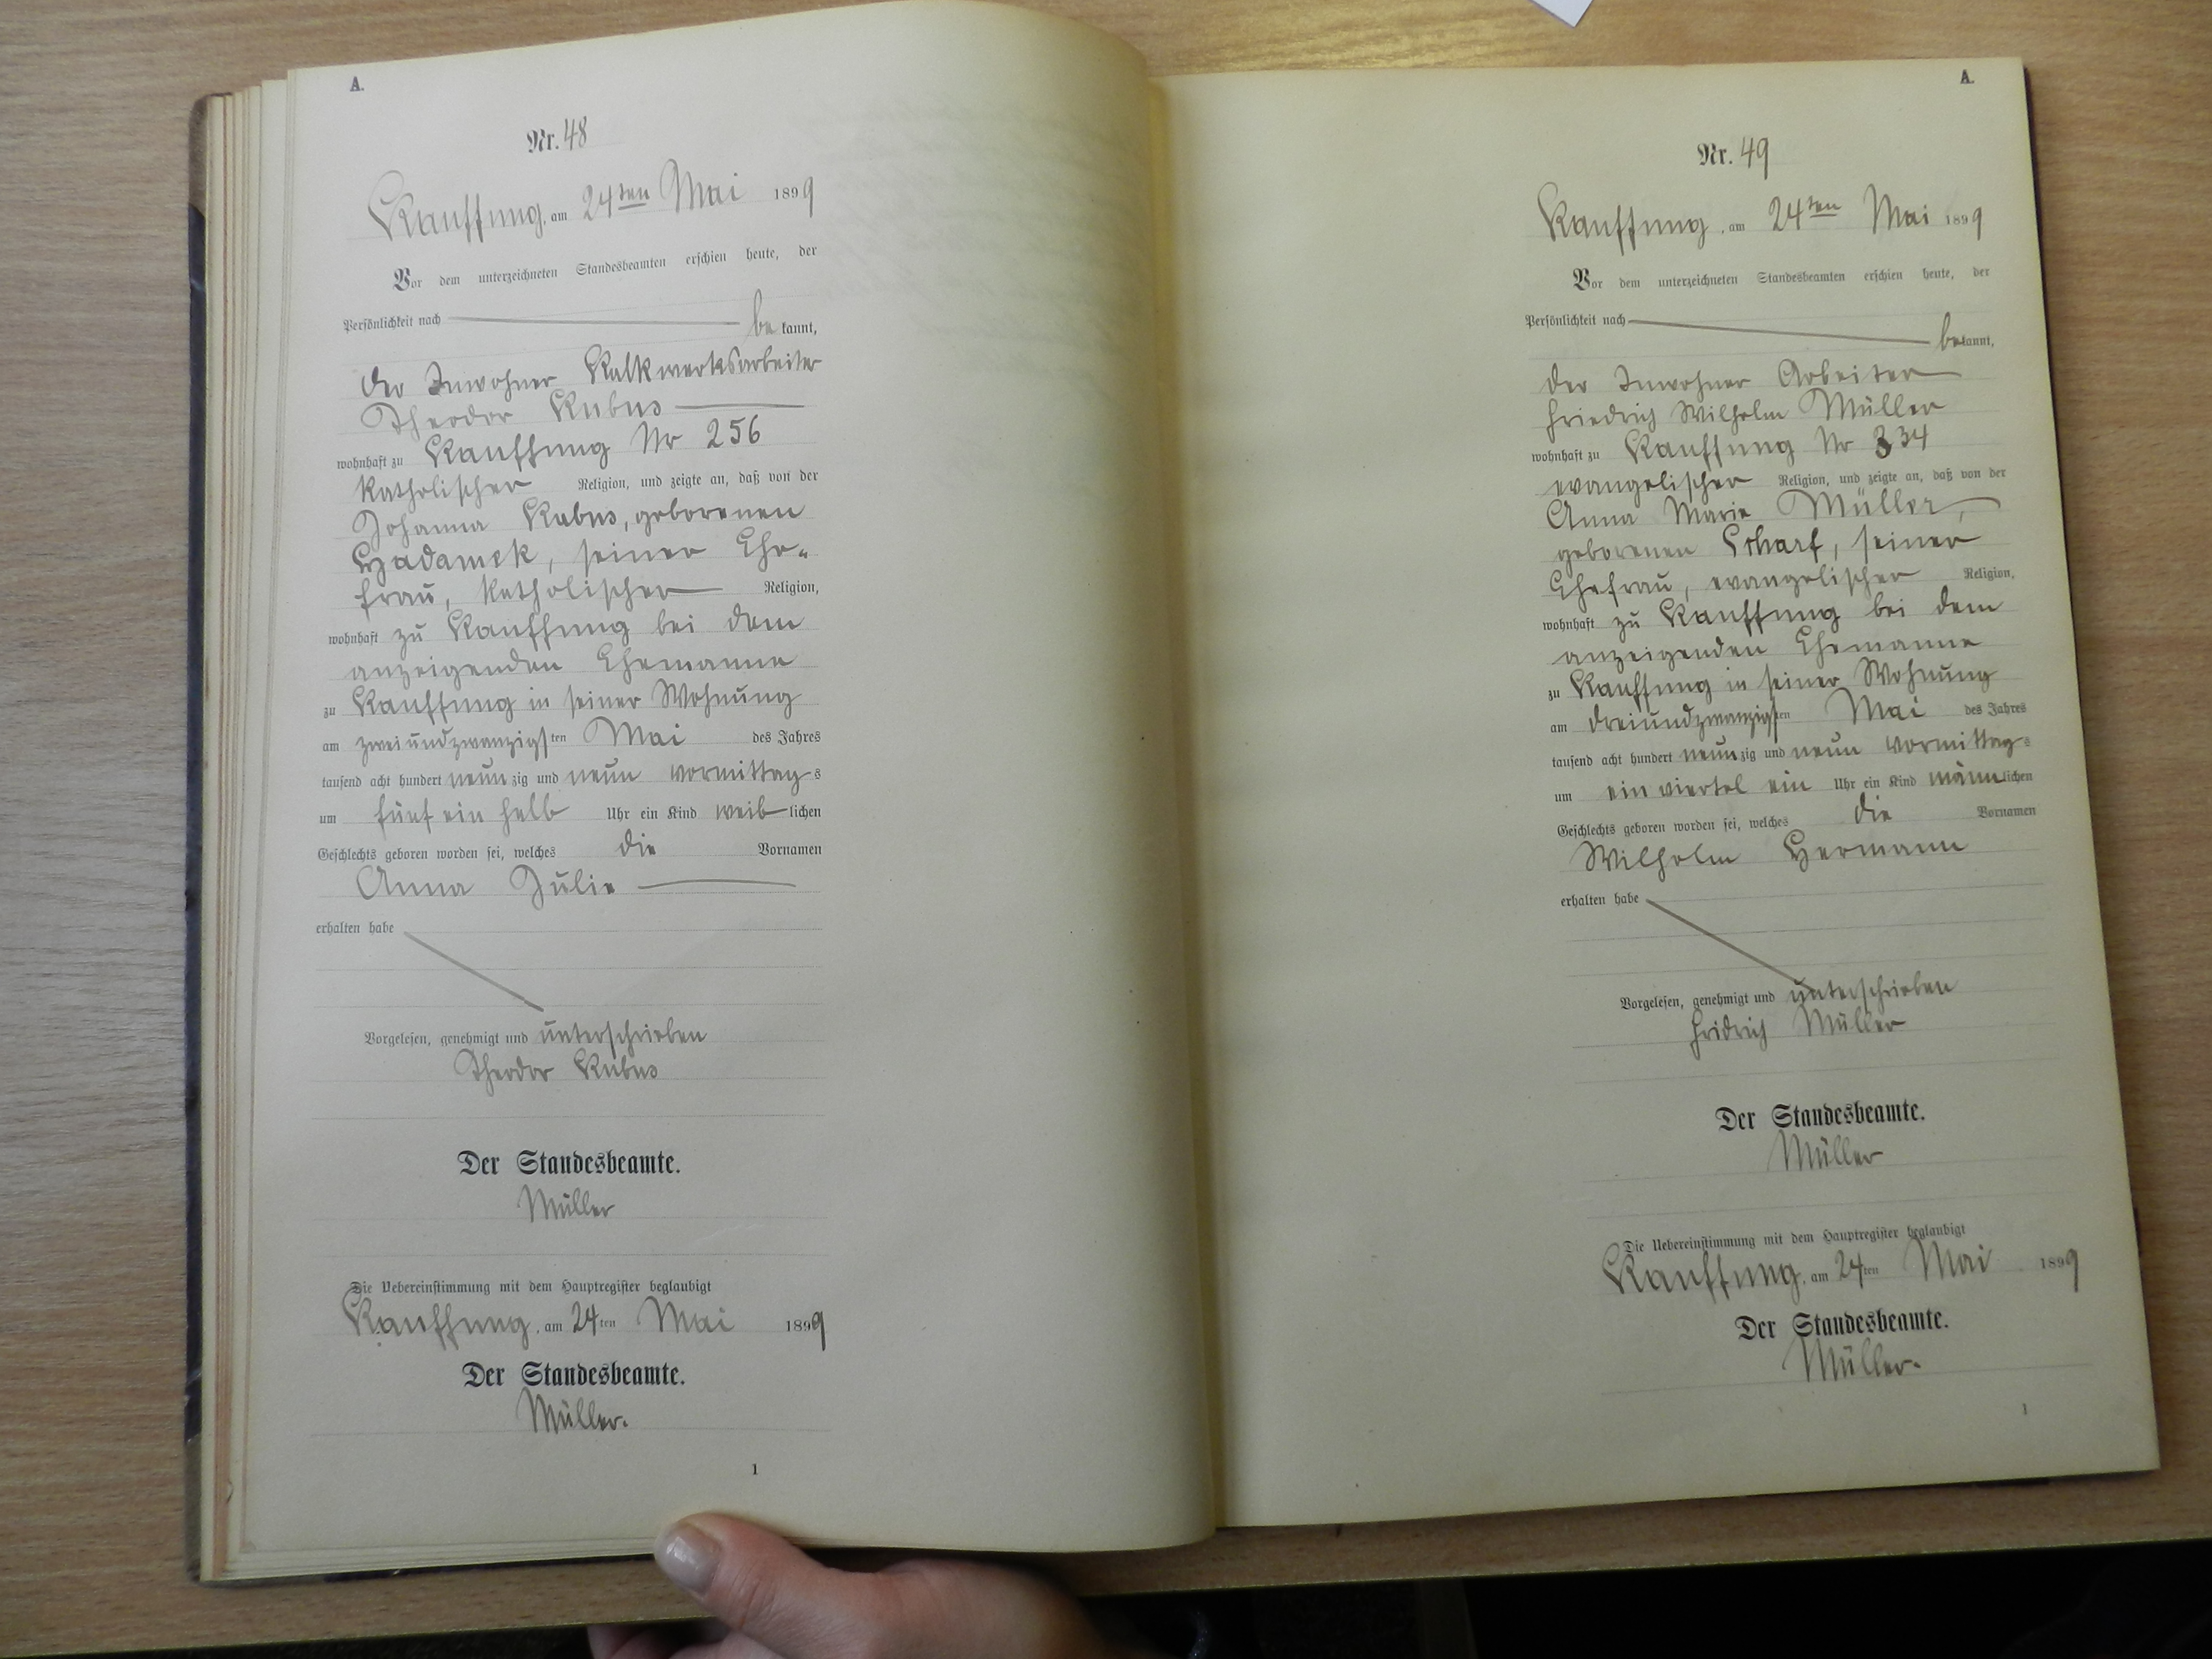 A.
Nr. 48
Kauffung, am 24ten Mai 1899
Vor dem unterzeichneten Standesbeamten erschien heute, der
Persönlichkeit nach be kannt,
der Inwohner Kalkwerksarbeiter
Theodor Kubus
wohnhaft zu Kauffung Nr 256
katholischer Religion, und zeigte an, daß von der
Johanna Kubus, geborenen
Hadamek, seiner Ehe-
frau, katholischer Religion,
wohnhaft zu Kauffung bei dem
anzeigenden Ehemanne
zu Kauffung in seiner Wohnung
am zweiundzwanzigsten Mai des Jahres
tausend acht hundert neunzig und neun vormittags
um fünf ein halb Uhr ein Kind weiblichen
Geschlechts geboren worden sei, welches die Vornamen
Anna Julie
erhalten habe
Vorgelesen, genehmigt und unterschrieben
Theodor Kubus
Der Standesbeamte.
Müller
Die Uebereinstimmung mit dem Hauptregister beglaubigt
Kauffung, am 24ten Mai 1899
Der Standesbeamte.
Müller.
1
A.
Nr. 49
Kauffung, am 24ten Mai 1899
Vor dem unterzeichneten Standesbeamten erschien heute, der
Persönlichkeit nach bekannt,
der Inwohner Arbeiter
Friedrich Wilhelm Müller
wohnhaft zu Kauffung Nr 334
evangelischer Religion, und zeigte an, daß von der
Anna Marie Müller,
geborenen Scharf, seiner
Ehefrau, evangelischer Religion,
wohnhaft zu Kauffung bei dem
anzeigenden Ehemanne
zu Kauffung in seiner Wohnung
am dreiundzwanzigsten Mai des Jahres
tausend acht hundert neunzig und neun vormittags
um ein viertel ein Uhr ein Kind männlichen
Geschlechts geboren worden sei, welches die Vornamen
Wilhelm Hermann
erhalten habe
Vorgelesen, genehmigt und unterschrieben
Fridrich Müller
Der Standesbeamte.
Müller
Die Uebereinstimmung mit dem Hauptregister beglaubigt
Kauffung, am 24ten Mai 1899
Der Standesbeamte.
Müller.
1